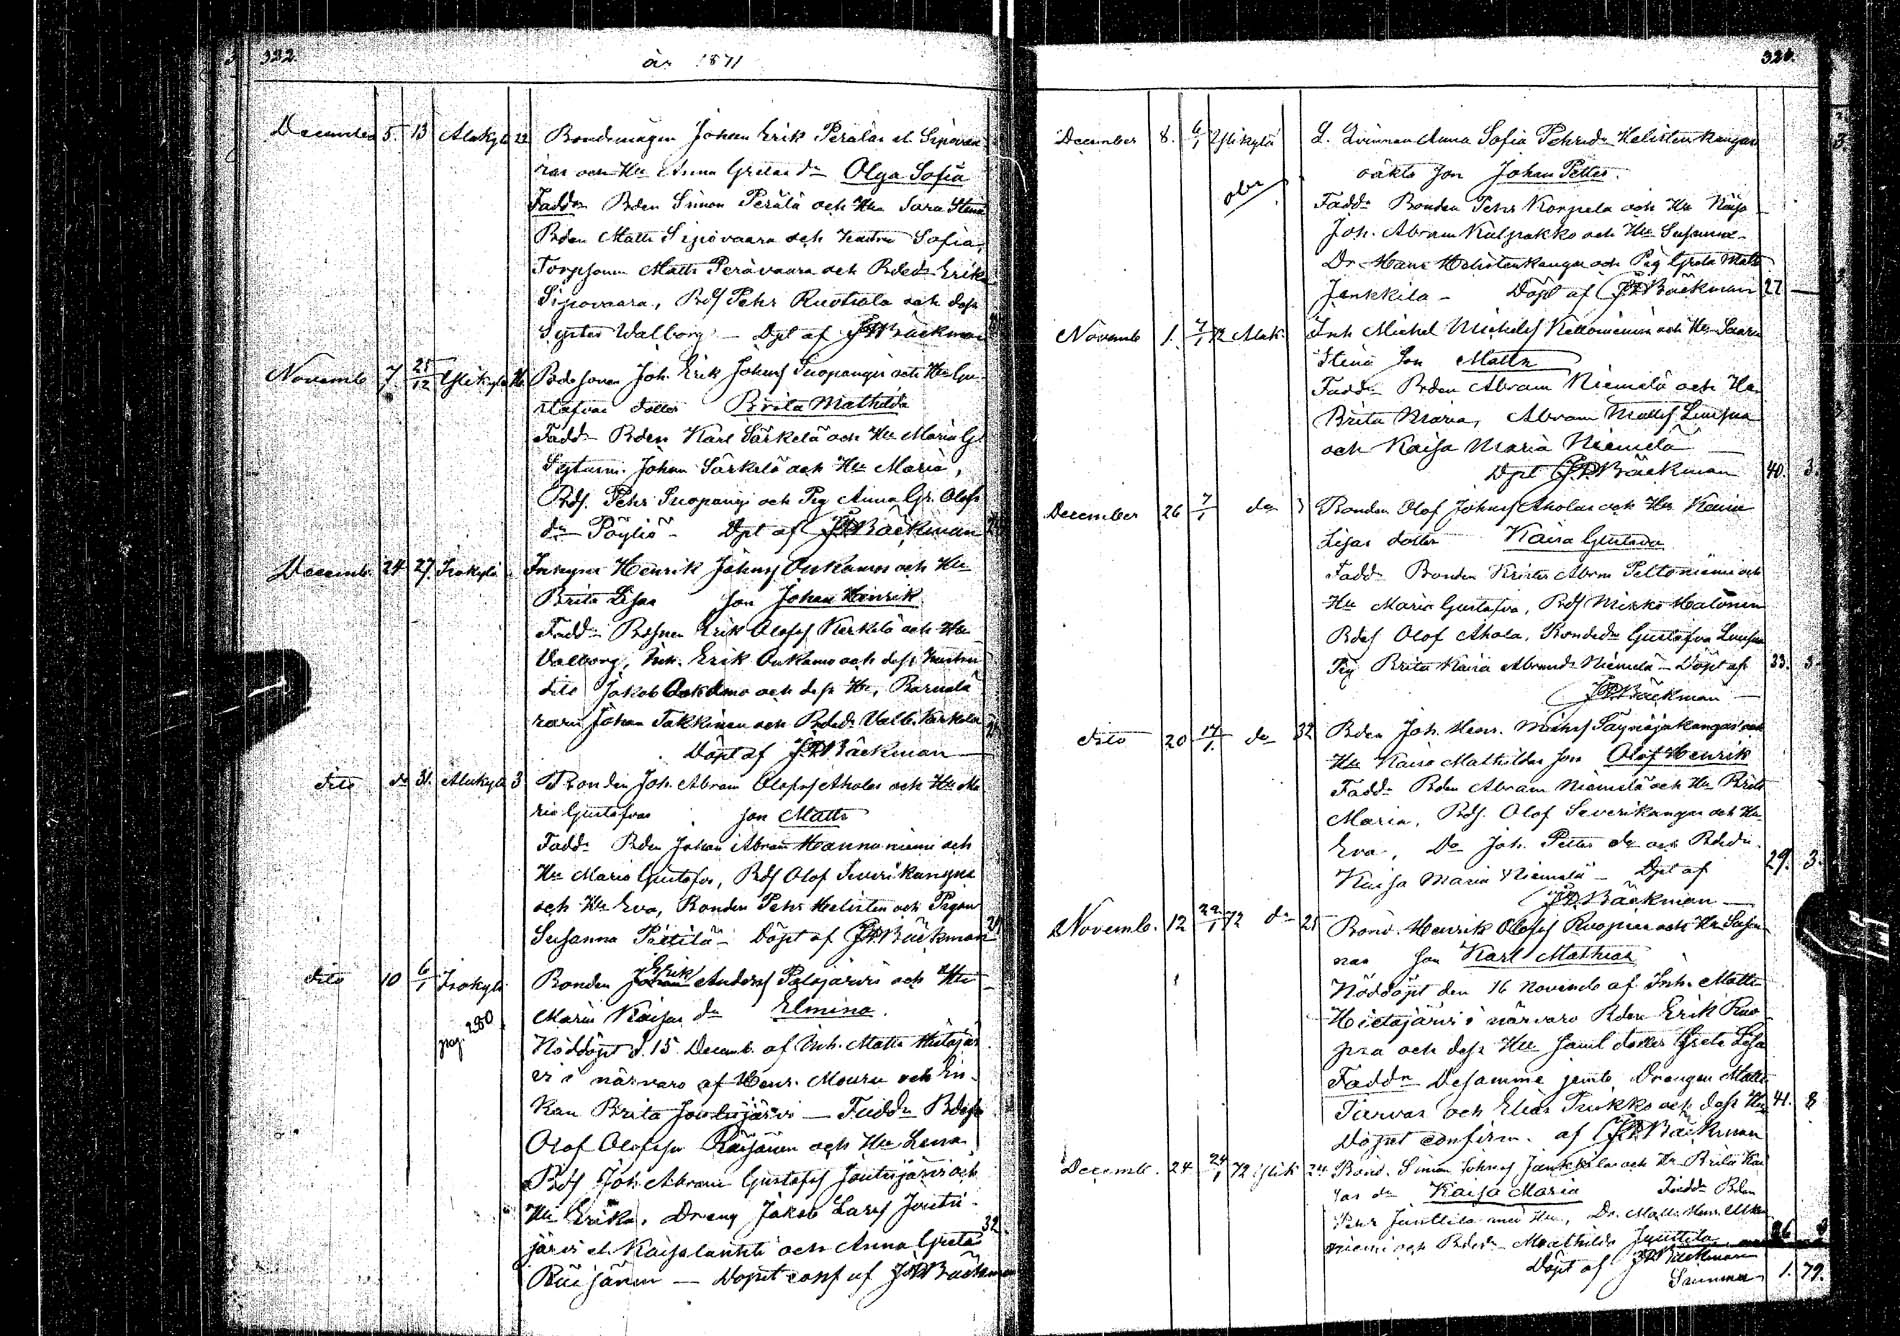 322
år 1871
December 5. 13 Alakylä 22 Bondemågen Johan Erik Perälas el. Sipovaa-
ras och Hu Anna Gretas dr Olga Sofia
Faddr Bden Simon Perälä och Hu Sara Stina
Bden Matts Sipovaara och hustru Sofia,
Torpsonen Matts Perävaara och Bdedr Erika
Sipovaara, Bds Pehr Ruotsala och dess
Syster Walborg — Dpt af JWBäckman
Novemb. 7. 25/12 Ylikylä 16 Bdesonen Joh. Erik Johnss Suopangis och Hu Gu-
stafvas dotter Brita Mathilda
Faddr Bden Karl Särkelä och Hu Maria G.
Johan Särkelä och Hu Maria,
Bds. Pehr Suopangi och Pig Anna Gr. Olofs
dr Pöyliö — Dpt af JWBäckman
Decemb. 24 27. Isokylä Inhyses Henrik Johnss Onkamos och Hu
Brita Lisas Son Johan Henrik
Faddr Bdsnen Erik Olofss Kerkelä och Hu
Valborg, Inh. Erik Onkamo och dess hustru
dito Jakob Onkamo och dess Hu, Barnalä
raren Johan Takkinen och Bdedr Valb. Karkela
Döpt af JWBäckman
dito do 31. Alakylä 3 Bonden Joh. Abram Olofss Aholas och Hu Ma
ria Gustafvas son Matts
Faddr Bden Johan Abram Hannuniemi och
Hu Maria Gustafva, Bds Olof Severikangas
och Hu Eva, Bonden Pehr Helisten och Pigan
Susanna Pietilä — Döpt af JWBäckman
dito 10 6/1 Isokylä Bonden Erik Anderss Palojärvis och Hu
Maria Kaisas dr Elmina.
pag. 280
Nöddöpt d. 15 Decemb. af Inh. Matts Hietajär
vi i närvaro af Henr. Mouru och En-
kan Brita Joutsijärvi — Faddr Bdesn
Olof Olofsson Räisänen och Hu Lena
Bds Joh. Abram Gustafss Joutsijärvi och
Hu Erika, Dreng Jakob Larss Joutsi-
järvi el. Kaisalantti och Anna Greta 32
Räisänen — Döpet conf af JWBäckman
December 8. 6/1 Ylikylä L. Qvinnan Anna Sofia Pehrsdr Helistenkangas
oäkta son Johan Petter.
obs
Faddr Bonden Pehr Korpela och Hu Kaisa
Joh. Abram Kulpakko och Hu Susanna
Dr Hans Helistenkangas och Pig Greta Matts
Jankkila — Döpt af JWBäckman 27 —
Novemb 1. 7/1 72 Alak. Inh Michel Michelss Keltoniemi och Hu Saara
Stina Son Matts
Faddr Bden Abram Niemelä och Hu
Brita Maria, Abram Mattss Luusua
och Kaisa Maria Niemelä
Dpt JWBäckman 40. 3.
December 26 7/1 do 3 Bonden Olof Johnss Aholas och Hu Kaisa
Lisas dotter Kaisa Gustava
Faddr Bonden Krister Abrm Peltoniemi och
Hu Maria Gustafva, Bds Mikko Halonen
Bdes Olof Ahola, Bondedr Gustafva Luusua
Pig Brita Kaisa Abramsdr Niemelä — Döpt af 33. 3.
JWBäckman —
dito 20 14/1 do 32 Bden Joh. Henr. Michss Täyräsjakangas och
Hu Kaisa Mathildas son Olof Henrik
Faddr Bden Abram Niemelä och Hu Brita
Maria, Bds. Olof Severikangas och Hu
Eva, Do Joh. Petter do och Bdedr.
Kaisa Maria Niemelä — Dpt af 29. 3.
JWBäckman —
Novemb. 12 29/1 72 do 25 Bond. Henrik Olofss Ruopsas och Hu Susan
nas Son Karl Mathias
Nöddöpt den 16 Novemb af Inh. Matts
Hietajärvi i närvaro Bden Erik Ruo
psa och dess Hu samt dotter Greta Lisa
Faddr Desamma jemte Drengen Matts
Tiarvas och Elias Pukko och dess Hu 41. 8
Döpet confirm. af JWBäckman
Decemb. 24 24/1 72 Ylik 24. Bond. Simon Johnss Jankkilas och Hu Brita Kai
sas dr Kaisa Maria Faddr Bden
Pehr Junttila med Hu, Dr. Matts Henr.
niemi och Bdedr Mathilda Junttila 26 3
Döpt af JWBäckman
Summa 1. 79.